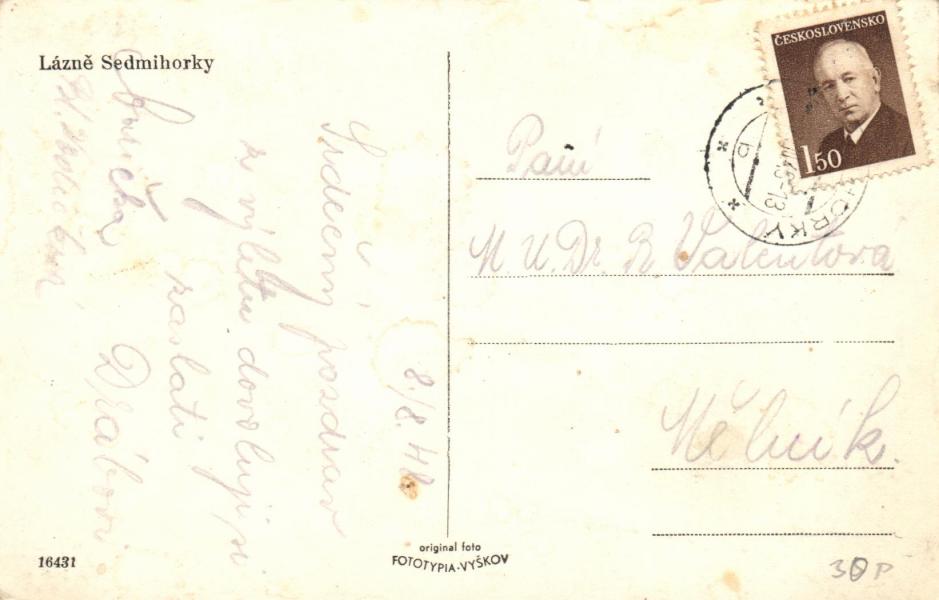 Lázně Sedmihorky
8./8. 48
Srdečný pozdrav
z výletu dovolují si
zaslati
Drábovi
16431
original foto
FOTOTYPIA-VYŠKOV
ČESKOSLOVENSKO
150
HORKY
Paní
M. U. Dr. R. Valentová
Mělník.
30 P